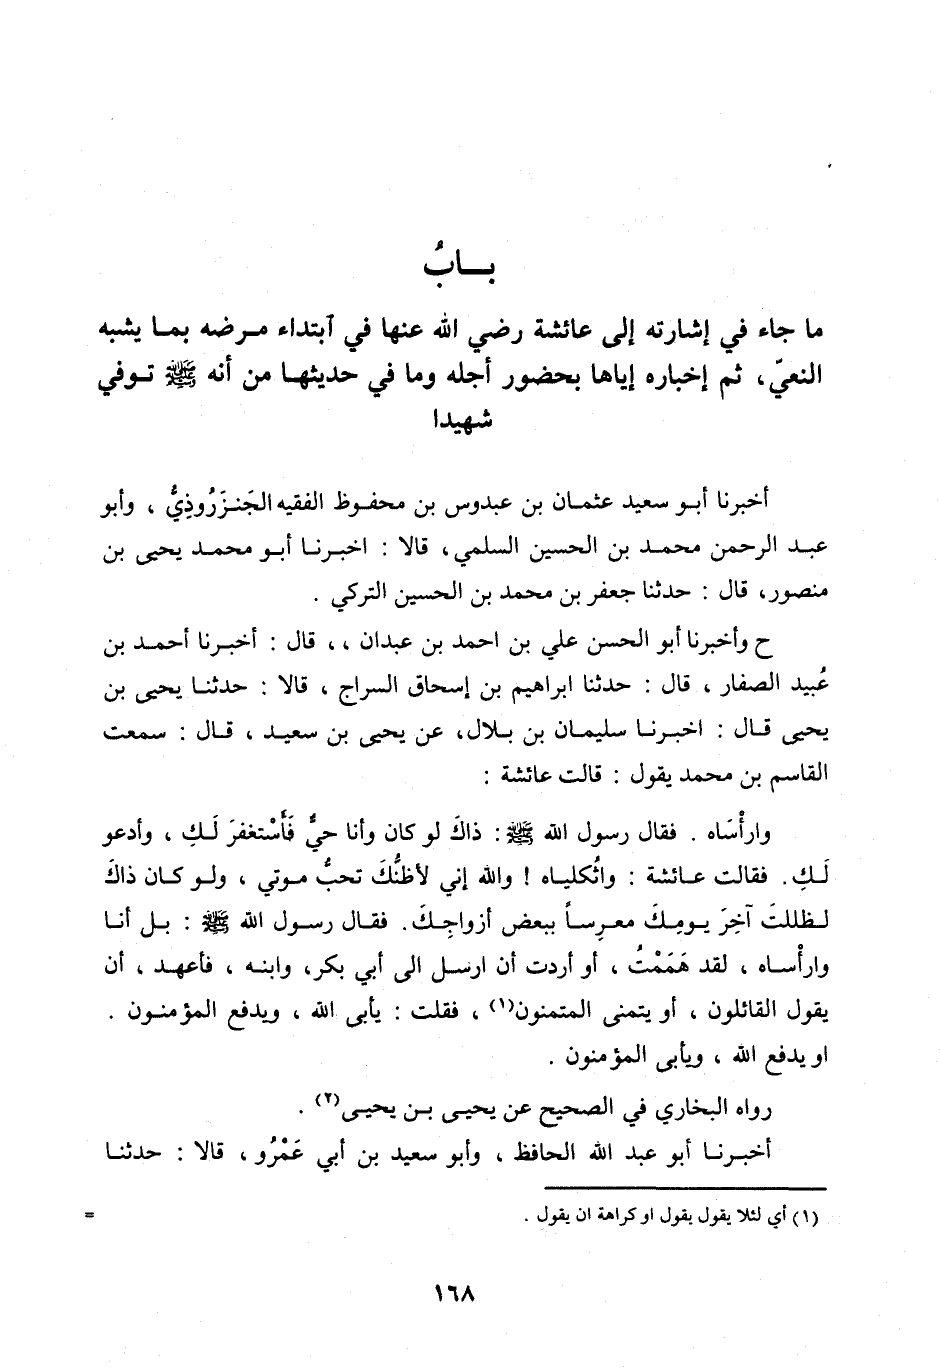 بـــابُ
ما جاء في إشارته إلى عائشة رضي الله عنها في آبتداء مرضه بما يشبه
النعيّ، ثم إخباره إياها بحضور أجله وما في حديثها من أنه ﷺ توفي
شهيدا
أخبرنا أبو سعيد عثمان بن عبدوس بن محفوظ الفقيه الجَنزَرُوذِيُّ ، وأبو
عبد الرحمن محمد بن الحسين السلمي، قالا : اخبرنا أبو محمد يحيى بن
منصور، قال : حدثنا جعفر بن محمد بن الحسين التركي .
ح وأخبرنا أبو الحسن علي بن احمد بن عبدان ،، قال : أخبرنا أحمد بن
عُبيد الصفار ، قال : حدثنا ابراهيم بن إسحاق السراج ، قالا : حدثنا يحيى بن
يحيى قال : اخبرنا سليمان بن بلال، عن يحيى بن سعيد ، قال : سمعت
القاسم بن محمد يقول : قالت عائشة :
وارأْسَاه . فقال رسول الله ﷺ : ذاكَ لو كان وأنا حيٌّ فَأَسْتغفرَ لَكِ ، وأدعو
لَكِ. فقالت عائشة : واثُكلياه ! والله إني لأظنُّكَ تحبُّ موتي ، ولو كان ذاكَ
لظللتَ آخِرَ يومِكَ معرِساً ببعض أزواجِكَ. فقال رسول الله ﷺ : بل أنا
وارأْساه ، لقد هَمَمْتُ ، أو أردت أن ارسل الى أبي بكر، وابنه ، فأعهد ، أن
يقول القائلون ، أو يتمنى المتمنون(١) ، فقلت : يأبى الله ، ويدفع المؤمنون .
او يدفع الله ، ويأبى المؤمنون .
رواه البخاري في الصحيح عن يحيى بن يحيى(٢) .
أخبرنا أبو عبد الله الحافظ ، وأبو سعيد بن أبي عَمْرُو ، قالا : حدثنا
(١) أي لئلا يقول يقول او كراهة ان يقول .
=
١٦٨